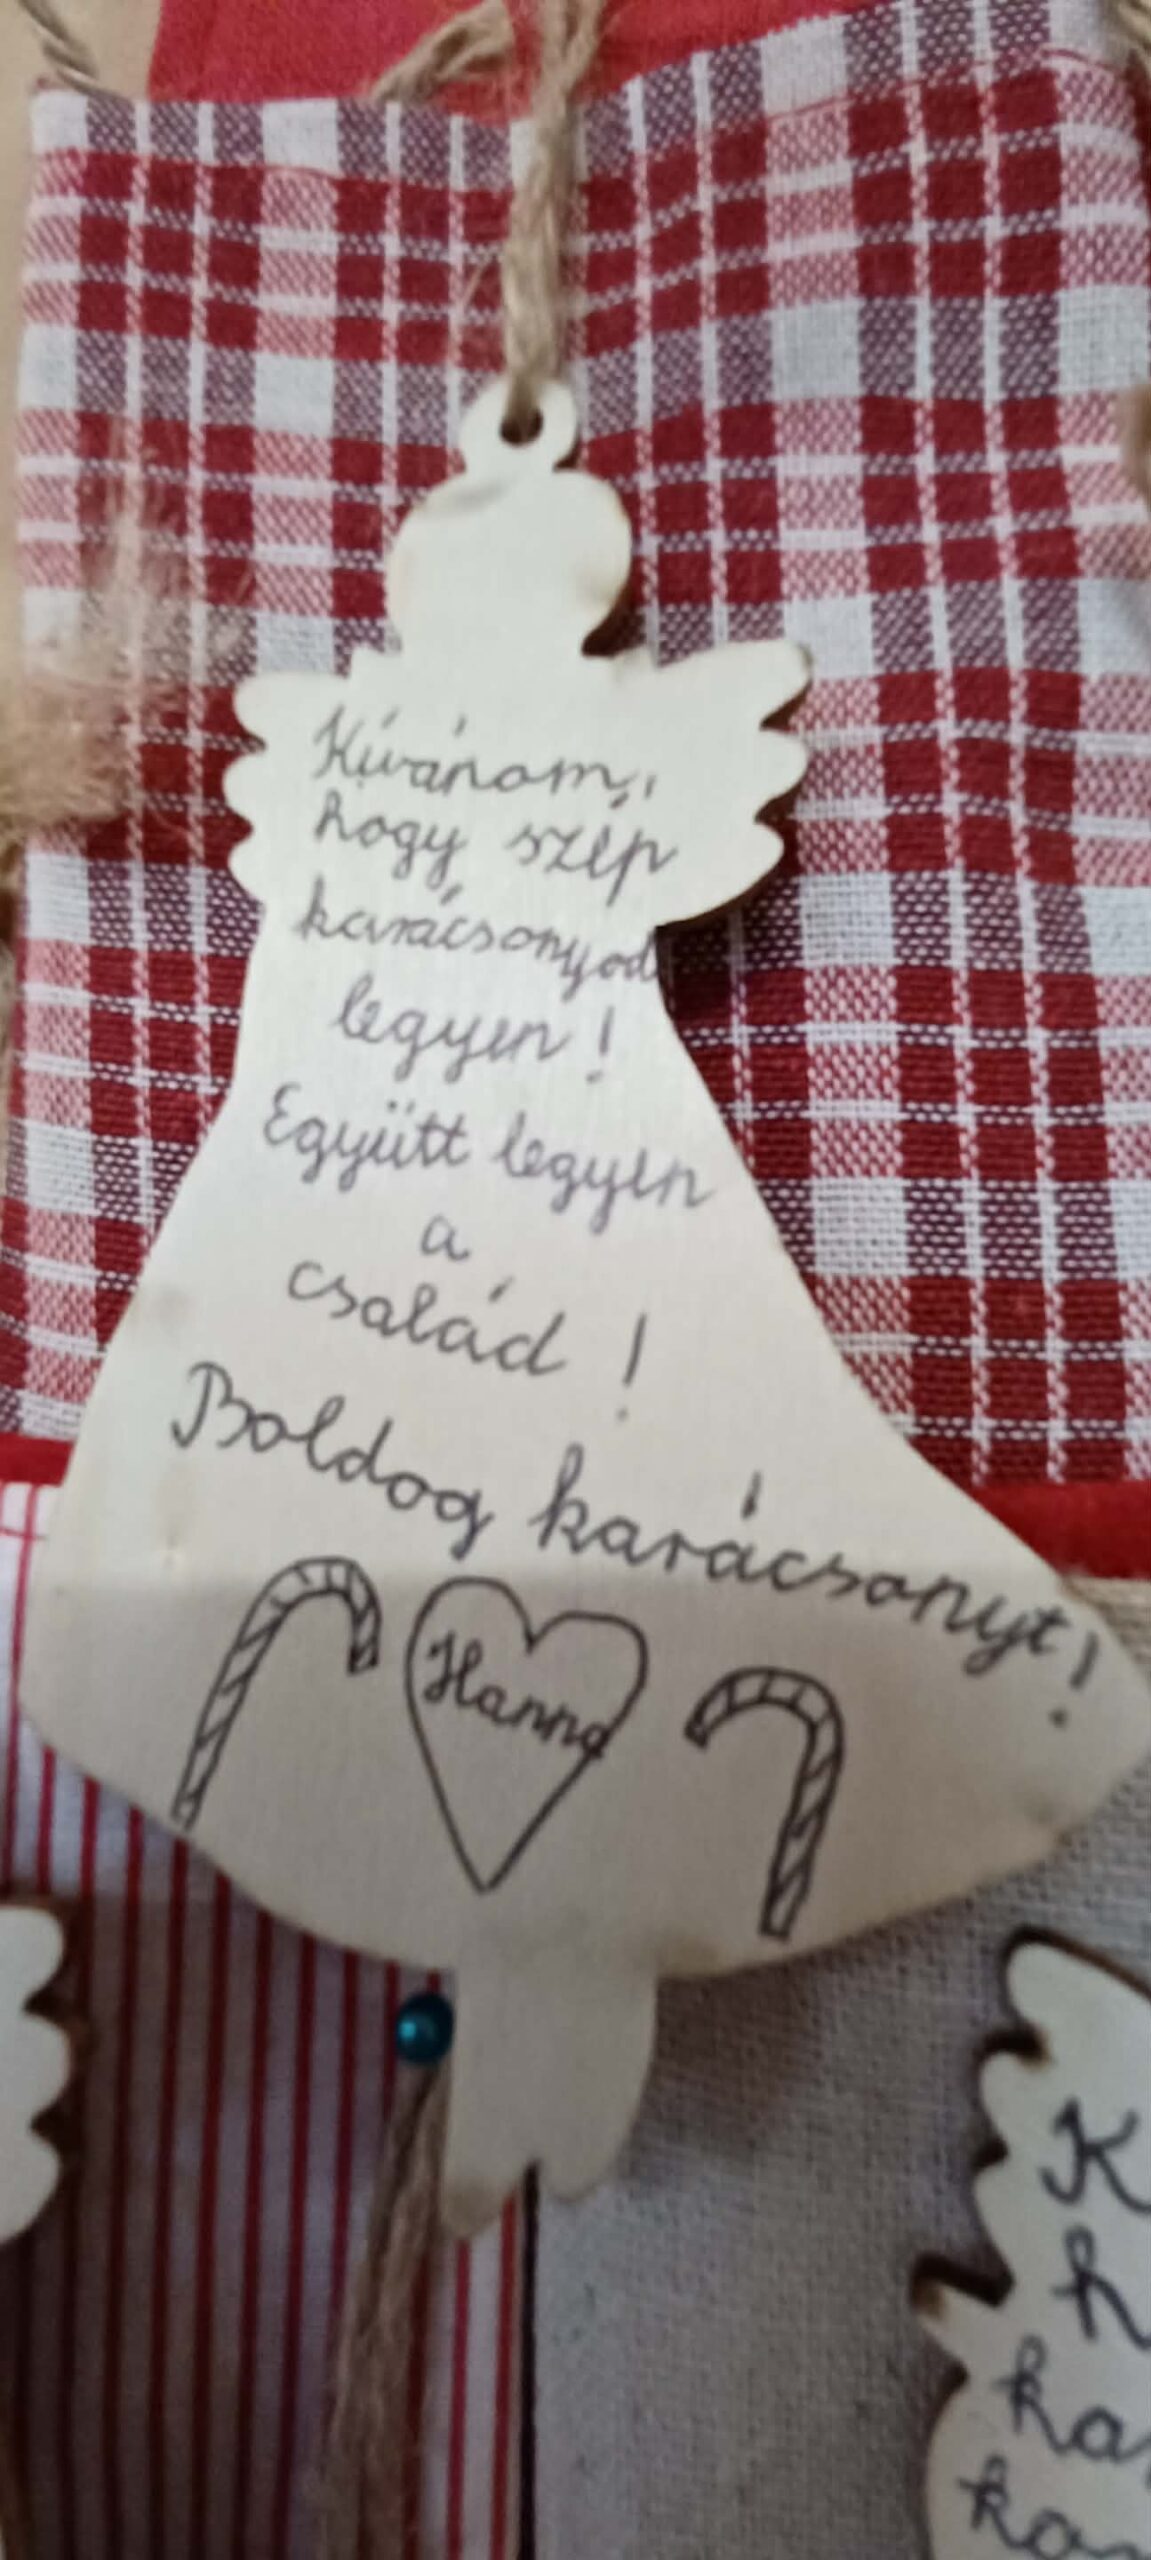 Kívánom,
hogy szép
karácsonyod
legyen!
Együtt legyen
a
család!
Boldog karácsonyt!
Hanna
K
h
ka
ka